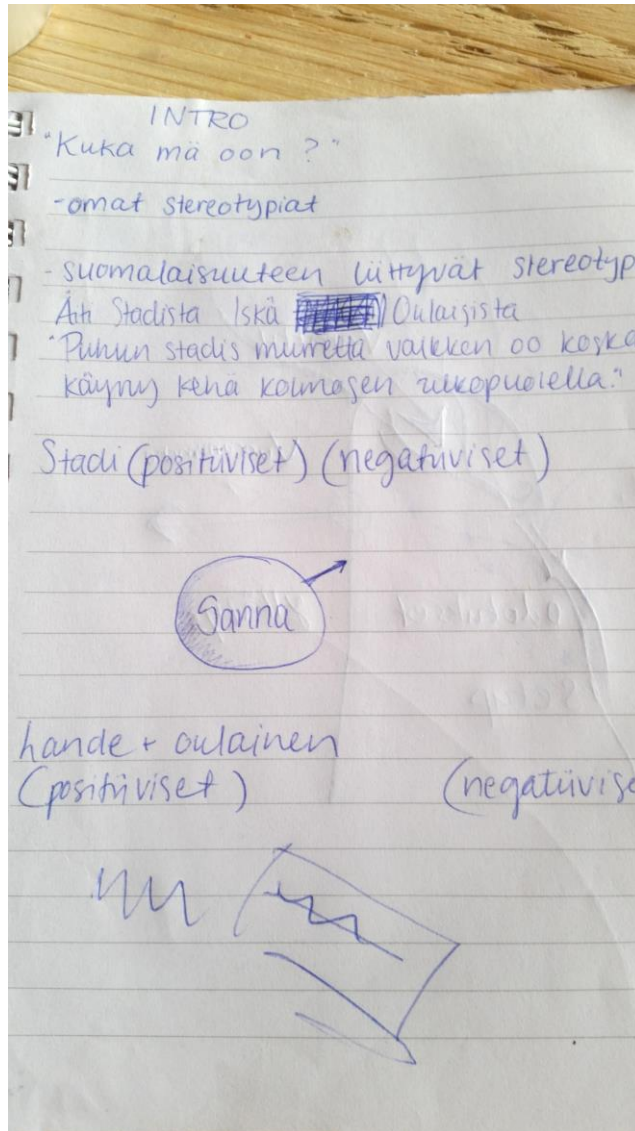 INTRO
"Kuka mä oon ?"
-omat stereotypiat
- suomalaisuuteen liittyvät stereotyp
Äiti Stadista Iskä Oulaisista
"Puhun stadis murretta vaikken oo koska
käyny kehä kolmosen ulkopuolella."
Stadi (positiiviset) (negatiiviset)
Sanna
hande + oulainen
(positiiviset) (negatiivise